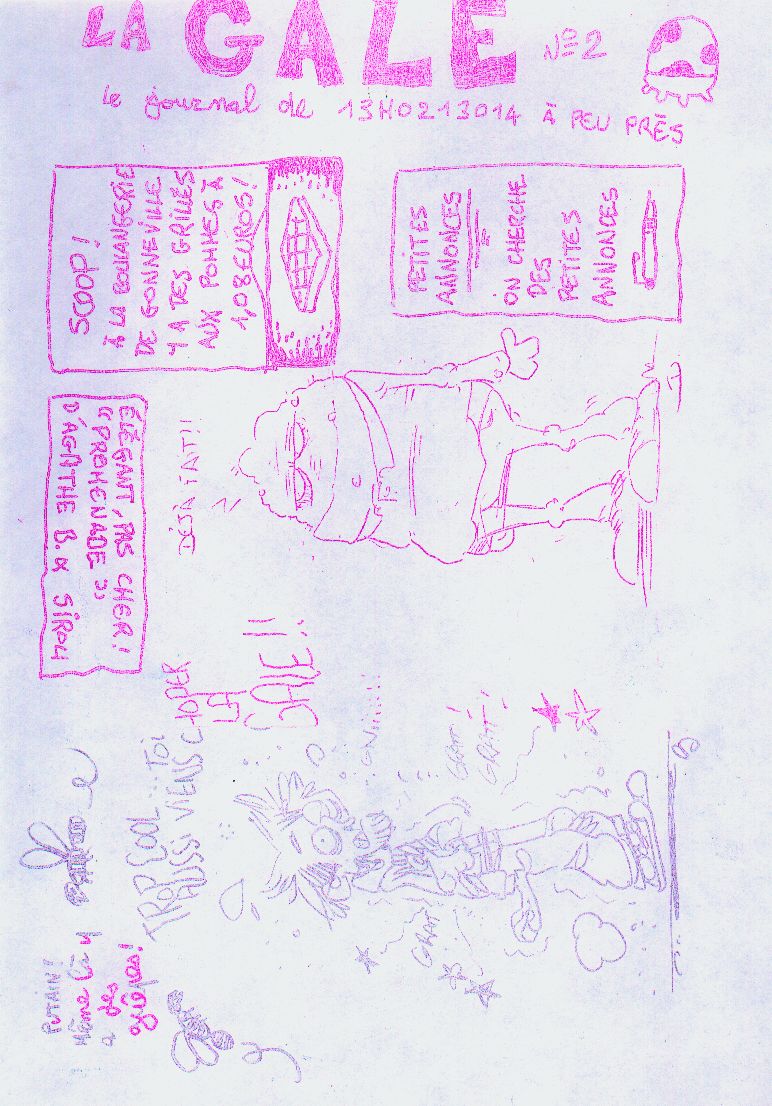 LA GALE N°2
le journal de 13H0213014 À PEU PRÈS
SCOOP !
À LA BOULANGERIE
DE GONNEVILLE
Y A DES GRILLES
AUX POMMES À
1,08 EUROS !
PETITES
ANNONCES
ON CHERCHE
DES
PETITES
ANNONCES
ÉLÉGANT, PAS CHER !
"PROMENADE"
D'AGATHE B. & SIROU
DÉJÀ FAIT !!
TROP COOL... TOI
AUSSI VIENS CHOPER
LA
GALE !!
GNiiiiii !
GRAT !
GRAT !
GRAT !
PUTAIN !
Même là y
a des
guêpes !